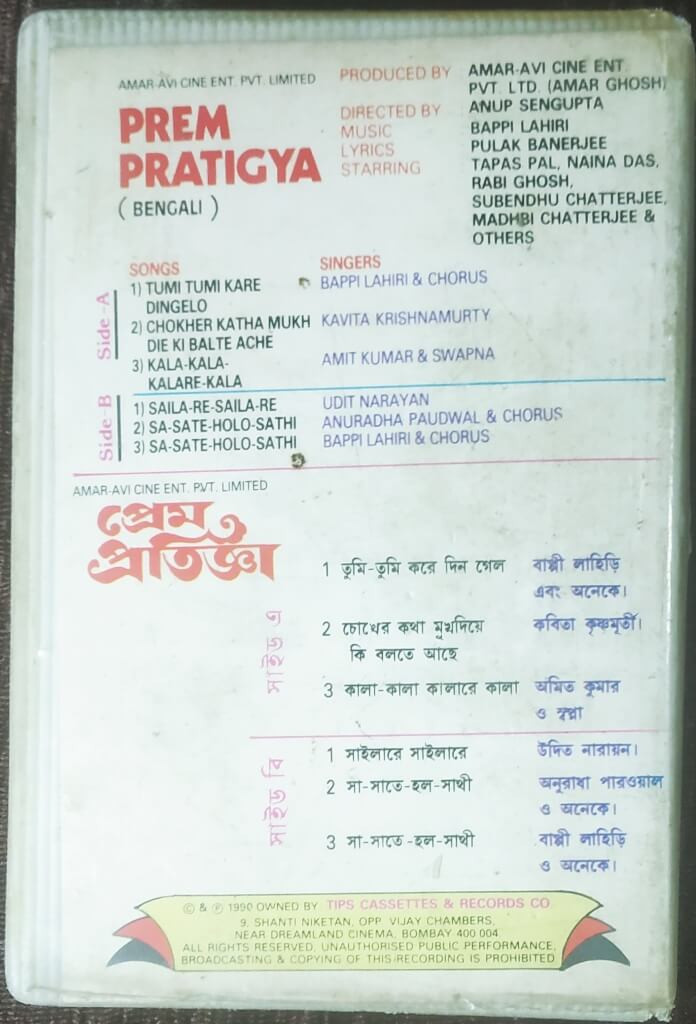 AMAR-AVI CINE ENT. PVT. LIMITED
PREM
PRATIGYA
( BENGALI )
PRODUCED BY AMAR-AVI CINE ENT.
PVT. LTD. (AMAR GHOSH)
DIRECTED BY ANUP SENGUPTA
MUSIC BAPPI LAHIRI
LYRICS PULAK BANERJEE
STARRING TAPAS PAL, NAINA DAS,
RABI GHOSH,
SUBENDHU CHATTERJEE,
MADHBI CHATTERJEE &
OTHERS
SONGS SINGERS
Side-A
1) TUMI TUMI KARE BAPPI LAHIRI & CHORUS
DINGELO
2) CHOKHER KATHA MUKH KAVITA KRISHNAMURTY
DIE KI BALTE ACHE
3) KALA-KALA- AMIT KUMAR & SWAPNA
KALARE-KALA
Side-B
1) SAILA-RE-SAILA-RE UDIT NARAYAN
2) SA-SATE-HOLO-SATHI ANURADHA PAUDWAL & CHORUS
3) SA-SATE-HOLO-SATHI BAPPI LAHIRI & CHORUS
AMAR-AVI CINE ENT. PVT. LIMITED
প্রেম
প্রতিজ্ঞা
সাইড এ
1 তুমি-তুমি করে দিন গেল বাপ্পী লাহিড়ি
এবং অনেকে।
2 চোখের কথা মুখদিয়ে কবিতা কৃষ্ণমূর্তী।
কি বলতে আছে
3 কালা-কালা কালারে কালা অমিত কুমার
ও স্বপ্না
সাইড বি
1 সাইলারে সাইলারে উদিত নারায়ন।
2 সা-সাতে-হল-সাথী অনুরাধা পারওয়াল
ও অনেকে।
3 সা-সাতে-হল-সাথী বাপ্পী লাহিড়ি
ও অনেকে।
© & ℗ 1990 OWNED BY TIPS CASSETTES & RECORDS CO
9, SHANTI NIKETAN, OPP. VIJAY CHAMBERS,
NEAR DREAMLAND CINEMA, BOMBAY 400 004.
ALL RIGHTS RESERVED, UNAUTHORISED PUBLIC PERFORMANCE,
BROADCASTING & COPYING OF THIS RECORDING IS PROHIBITED